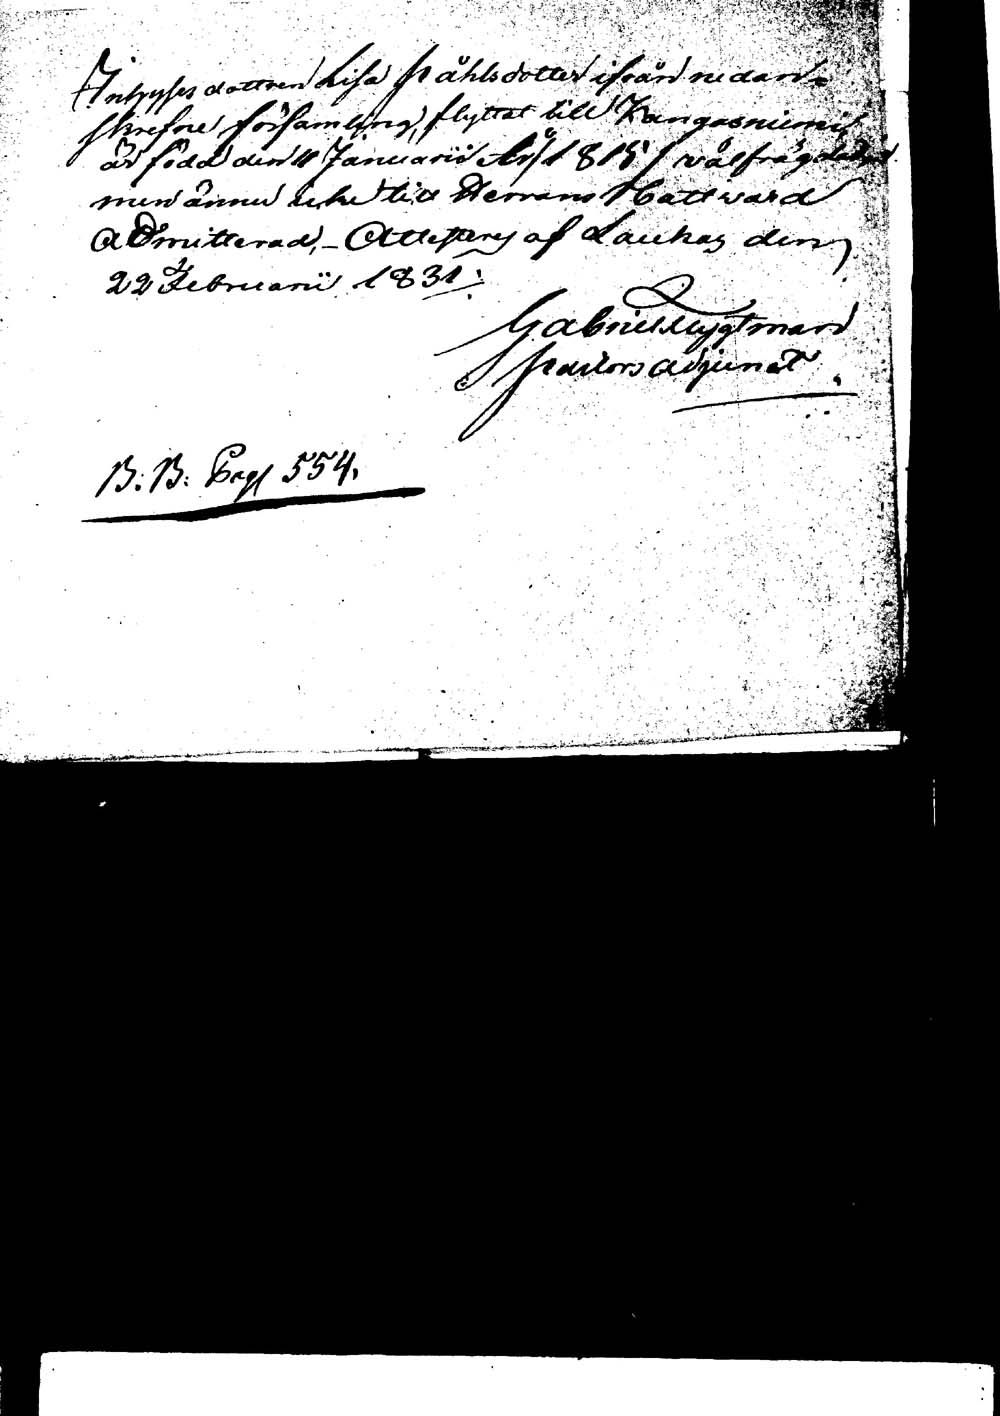 Inhyses dottren Lisa Påhlsdotter ifrån nedan-
skrefne församling, flyttat till Kangasniemi,
är född den 11 Januarii År 1815 / välfrägdad
men ännu icke till Herrans Nattward
admitterad, - Attesteras af Laukas den
22 Februarii 1831:
Gabriel
Pastors adjunct.
B: B: Pag 554.